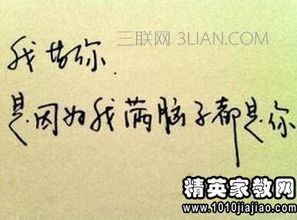 三联网 3LIAN.COM
我 你.
是因为我满脑子都是你
精英家教网
www.1010jiajiao.com